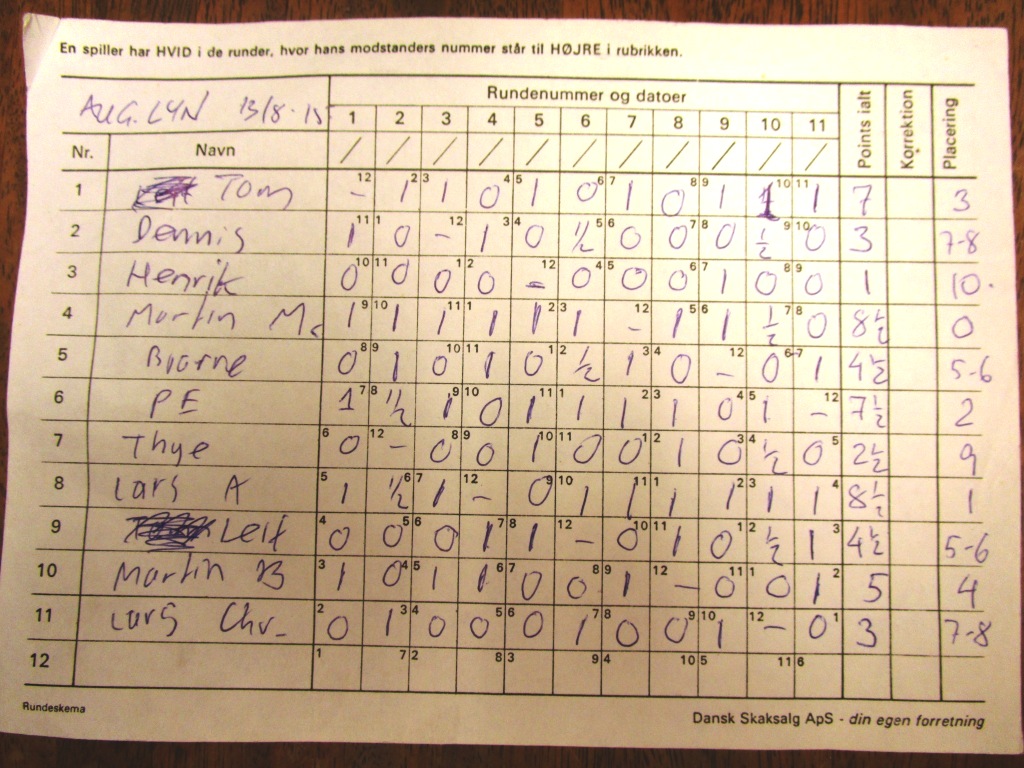 En spiller har HVID i de runder, hvor hans modstanders nummer står til HØJRE i rubrikken.
AUG. LYN 13/8-15 Rundenummer og datoer Points ialt Korrektion Placering
1 2 3 4 5 6 7 8 9 10 11
Nr. Navn / / / / / / / / / / /
1 Tom - 12 1 2 3 1 0 4 5 1 0 6 7 1 0 8 9 1 1 10 11 1 7 3
2 Dennis 1 11 1 0 - 12 1 3 4 0 ½ 5 6 0 0 7 8 0 ½ 9 10 0 3 7-8
3 Henrik 0 10 11 0 0 1 2 0 - 12 0 4 5 0 0 6 7 1 0 8 9 0 1 10.
4 Martin M 1 9 10 1 1 11 1 1 1 2 3 1 - 12 1 5 6 1 ½ 7 8 0 8½ 0
5 Bjarne 0 8 9 1 0 10 11 1 0 1 2 ½ 1 3 4 0 - 12 0 6 7 1 4½ 5-6
6 PE 1 7 8 ½ 1 9 10 0 1 11 1 1 1 2 3 1 0 4 5 1 - 12 7½ 2
7 Thye 6 0 12 - 0 8 9 0 1 10 11 0 0 1 2 1 0 3 4 ½ 0 5 2½ 9
8 Lars A 5 1 ½ 6 7 1 12 - 0 9 10 1 1 11 1 1 1 2 3 1 1 4 8½ 1
9 Leif 4 0 0 5 6 0 1 7 8 1 12 - 0 10 11 1 0 1 2 ½ 1 3 4½ 5-6
10 Martin B 3 1 0 4 5 1 1 6 7 0 0 8 9 1 12 - 0 11 1 0 1 2 5 4
11 Lars Chr. 2 0 1 3 4 0 0 5 6 0 1 7 8 0 0 9 10 1 12 - 0 1 3 7-8
12 1 7 2 8 3 9 4 10 5 11 6
Rundeskema Dansk Skaksalg ApS - din egen forretning